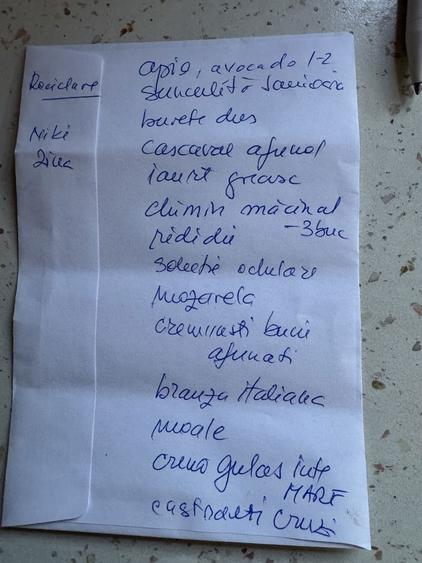 Reciclare
Niki
Zina
apio, avocado 1-2
suculită
burete dus
cascaval afumat
iaurt grecesc
chimin măcinat
- 3buc
solutie oculare
mozarela
cremvusti bucii
afumati
branza italiana
moale
crema gulas iute
MARE
castraveti cruzi